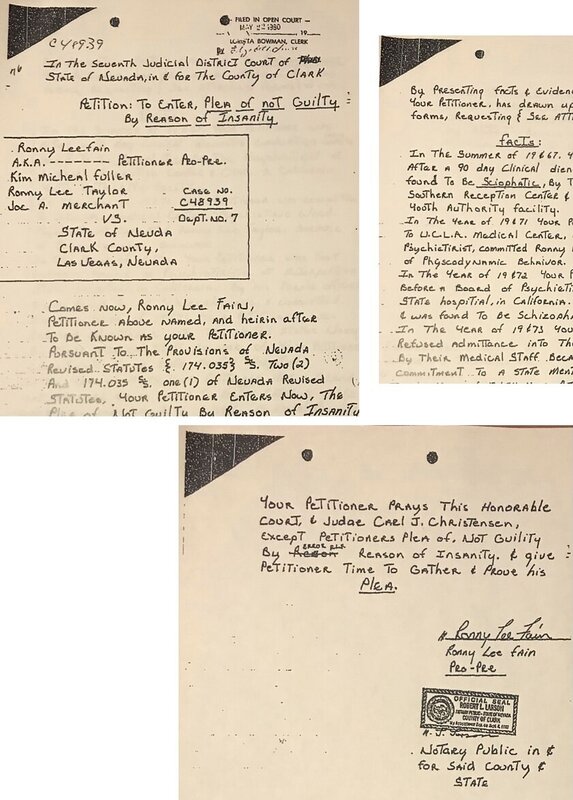 C48939
FILED IN OPEN COURT
MAY 22 1980 19
LORETTA BOWMAN, CLERK
In the Seventh Judicial District Court of
State of Nevada, in & for the County of Clark
Petition: To Enter, Plea of not Guilty
By Reason of Insanity
Ronny Lee Fain
A.K.A. -------- Petitioner Pro-Pre.
Kim Micheal Fuller
Ronny Lee Taylor Case No.
Joe A. Merchant C48939
VS. Dept. No. 7
State of Nevuda
Clark County,
Las Vegas, Nevada
Comes Now, Ronny Lee Fain,
Petitioner above named, and heirin after
To be Known as your Petitioner.
Pursuant To The Provisions of Nevada
Revised Statutes {. 174.035} §. Two (2)
And 174.035 §. one (1) of Nevada Revised
Statutes. Your Petitioner Enters Now, The
Plea of Not Guilty By Reason of Insanity
By Presenting facts & Eviden
Your Petitioner, has drawn up
forms, Requesting & See Att
Facts:
In The Summer of 1967. Y
After a 90 day Clinical dien
found To Be Sciophatic, By T
Southern Reception Center &
Youth Authority facility.
In The Year of 1971 Your P
To U.C.L.A. Medical Center,
Psychietirist, committed Ronny
of Physcodynnmic Behnivor.
In The Year of 1972 Your P
Before a Board of Psychieti
State hospitial, in California.
& was found To Be Schizoph
In The Year of 1973 Your
Refused admittance into Th
By Their Medical Staff. Beca
Commitment To a State Ment
Your Petitioner Prays This Honorable
Court, & Judge Carl J. Christensen,
Except Petitioners Plea of, Not Guility
By Reason ERROR RLF Reason of Insanity. & give
Petitioner Time To Gather & Prove his
Plea.
Ronny Lee Fain
Ronny Lee Fain
Pro-Pre
OFFICIAL SEAL
ROBERT L. LARSON
NOTARY PUBLIC - STATE OF NEVADA
COUNTY OF CLARK
Notary Public in &
for Said County &
State